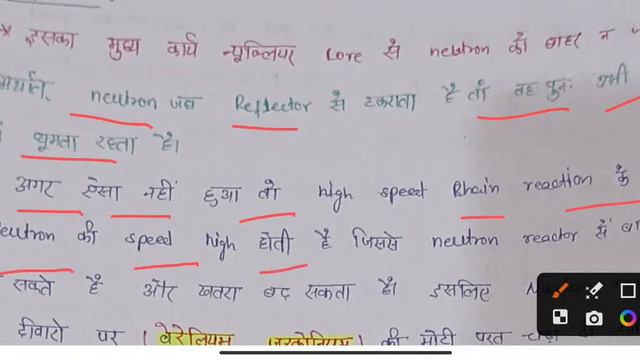 * इसका मुख्य कार्य न्यूक्लियर core से neutron को बाहर न
अर्थात् neutron जब Reflector से टकराता है तो वह पुनः उसी
घूमता रहता है।
अगर ऐसा नहीं हुआ तो high speed Chain reaction के
neutron की speed high होती है जिससे neutron reactor से
सकते है और खतरा बढ़ सकता है। इसलिए
दीवारो पर (बेरेलियम जरकोनियम) की मोटी परत